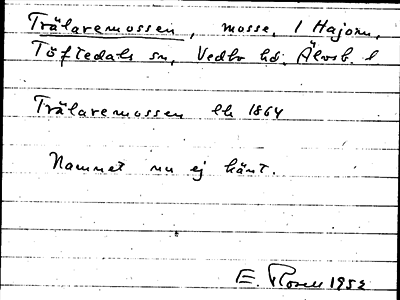 Trälaremossen, mosse, 1 Hajom,
Töftedals sn, Vedbo hd. Älvsb. l
Trälaremossen lk 1864
Namnet nu ej känt.
E. Rosell 1952